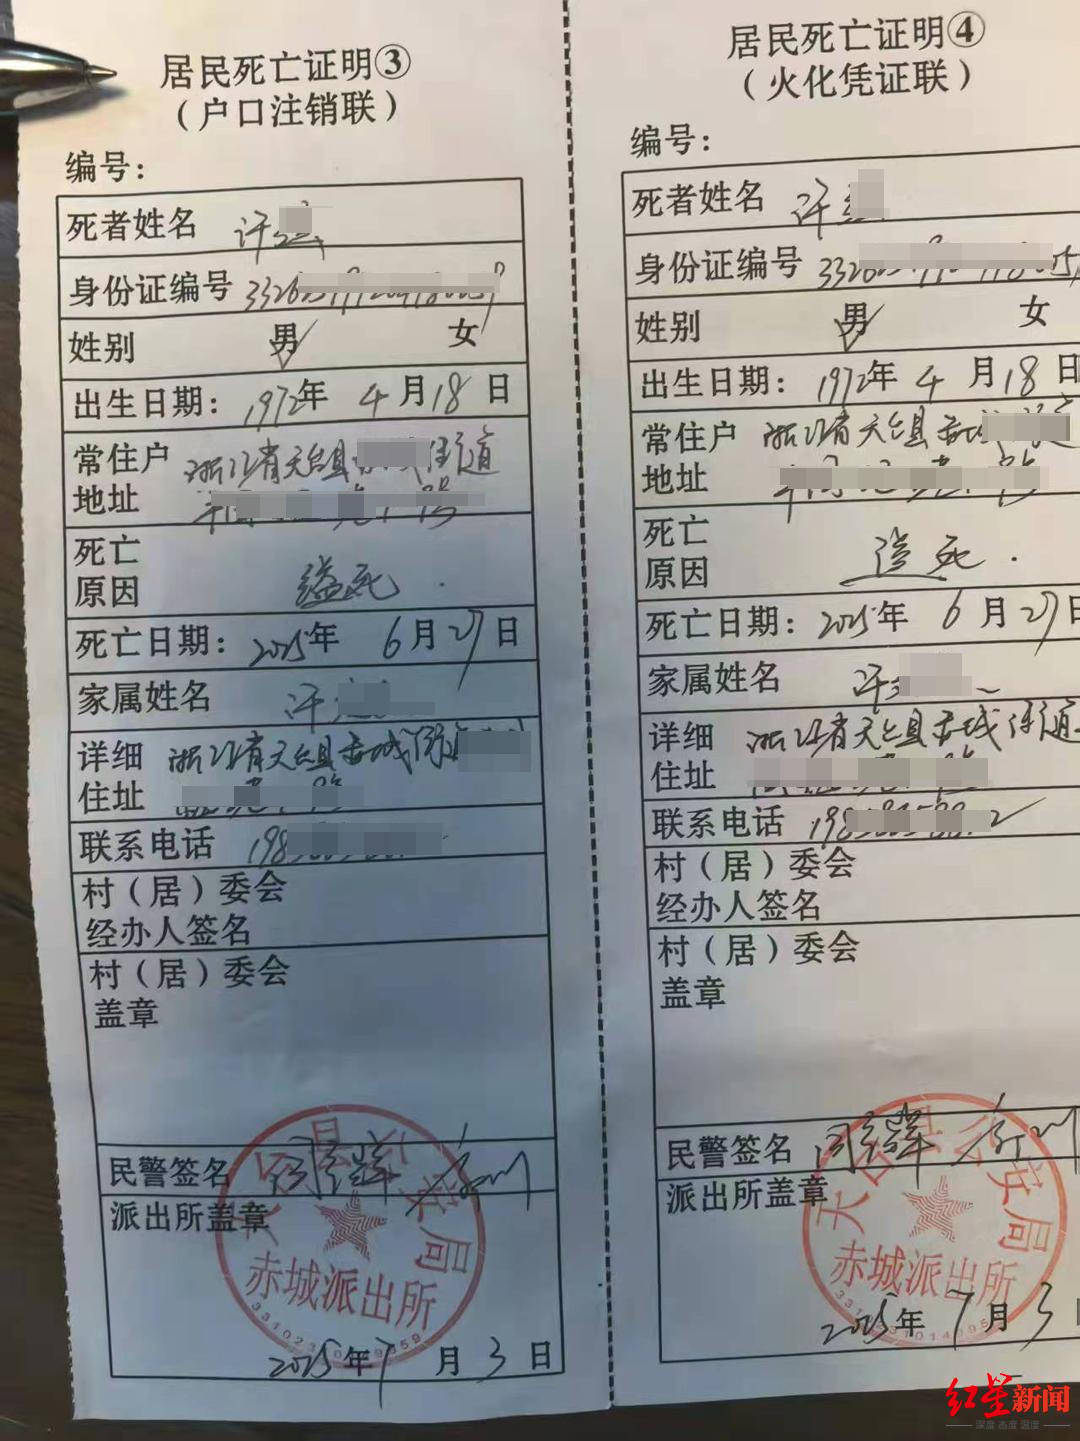 居民死亡证明③
（户口注销联）
编号：
死者姓名 许
身份证编号
姓别 男 女
出生日期：1972年 4月18日
常住户 浙江省天台县
地址
死亡
原因 缢死.
死亡日期：2025年 6月27日
家属姓名 许
详细 浙江省天台县赤城街道
住址
联系电话
村（居）委会
经办人签名
村（居）委会
盖章
民警签名
派出所盖章
天台县公安局
赤城派出所
2025年7月3日
居民死亡证明④
（火化凭证联）
编号：
死者姓名 许
身份证编号
姓别 男 女
出生日期：1972年 4月18日
常住户 浙江省天台县
地址
死亡
原因 缢死.
死亡日期：2025年 6月27日
家属姓名 许
详细 浙江省天台县赤城街道
住址
联系电话
村（居）委会
经办人签名
村（居）委会
盖章
民警签名
派出所盖章
天台县公安局
赤城派出所
2025年7月3日
红星新闻
深度 态度 温度